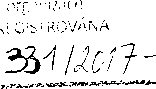 REGISTROVÁNA
331/2017-